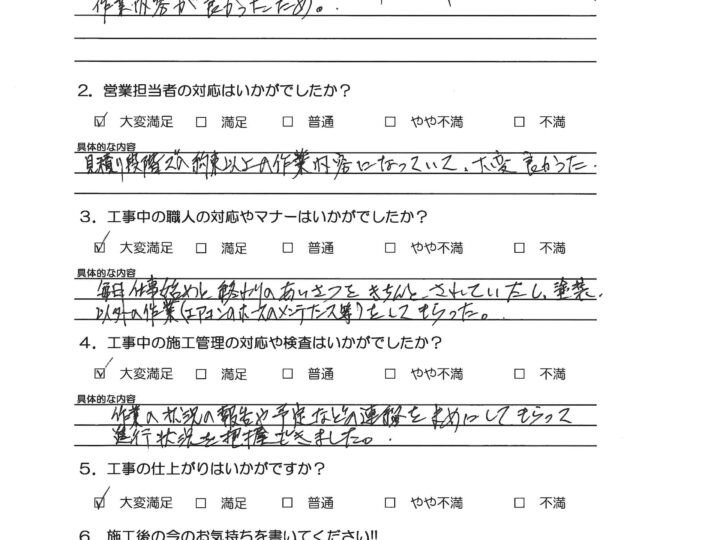 作業内容が良かったため。
2. 営業担当者の対応はいかがでしたか?
☑ 大変満足 □ 満足 □ 普通 □ やや不満 □ 不満
具体的な内容
見積り段階での約束以上の作業内容になっていて、大変良かった.
3. 工事中の職人の対応やマナーはいかがでしたか?
☑ 大変満足 □ 満足 □ 普通 □ やや不満 □ 不満
具体的な内容
毎日仕事始めと終わりのあいさつをきちんとされていたし、塗装
以外の作業(エアコンのホースのメンテナンス等)をしてもらった。
4. 工事中の施工管理の対応や検査はいかがでしたか?
☑ 大変満足 □ 満足 □ 普通 □ やや不満 □ 不満
具体的な内容
作業の状況の報告や予定などの連絡をまめにしてもらって
進行状況を把握できました。
5. 工事の仕上がりはいかがですか?
☑ 大変満足 □ 満足 □ 普通 □ やや不満 □ 不満
6. 施工後の今のお気持ちを書いてください!!